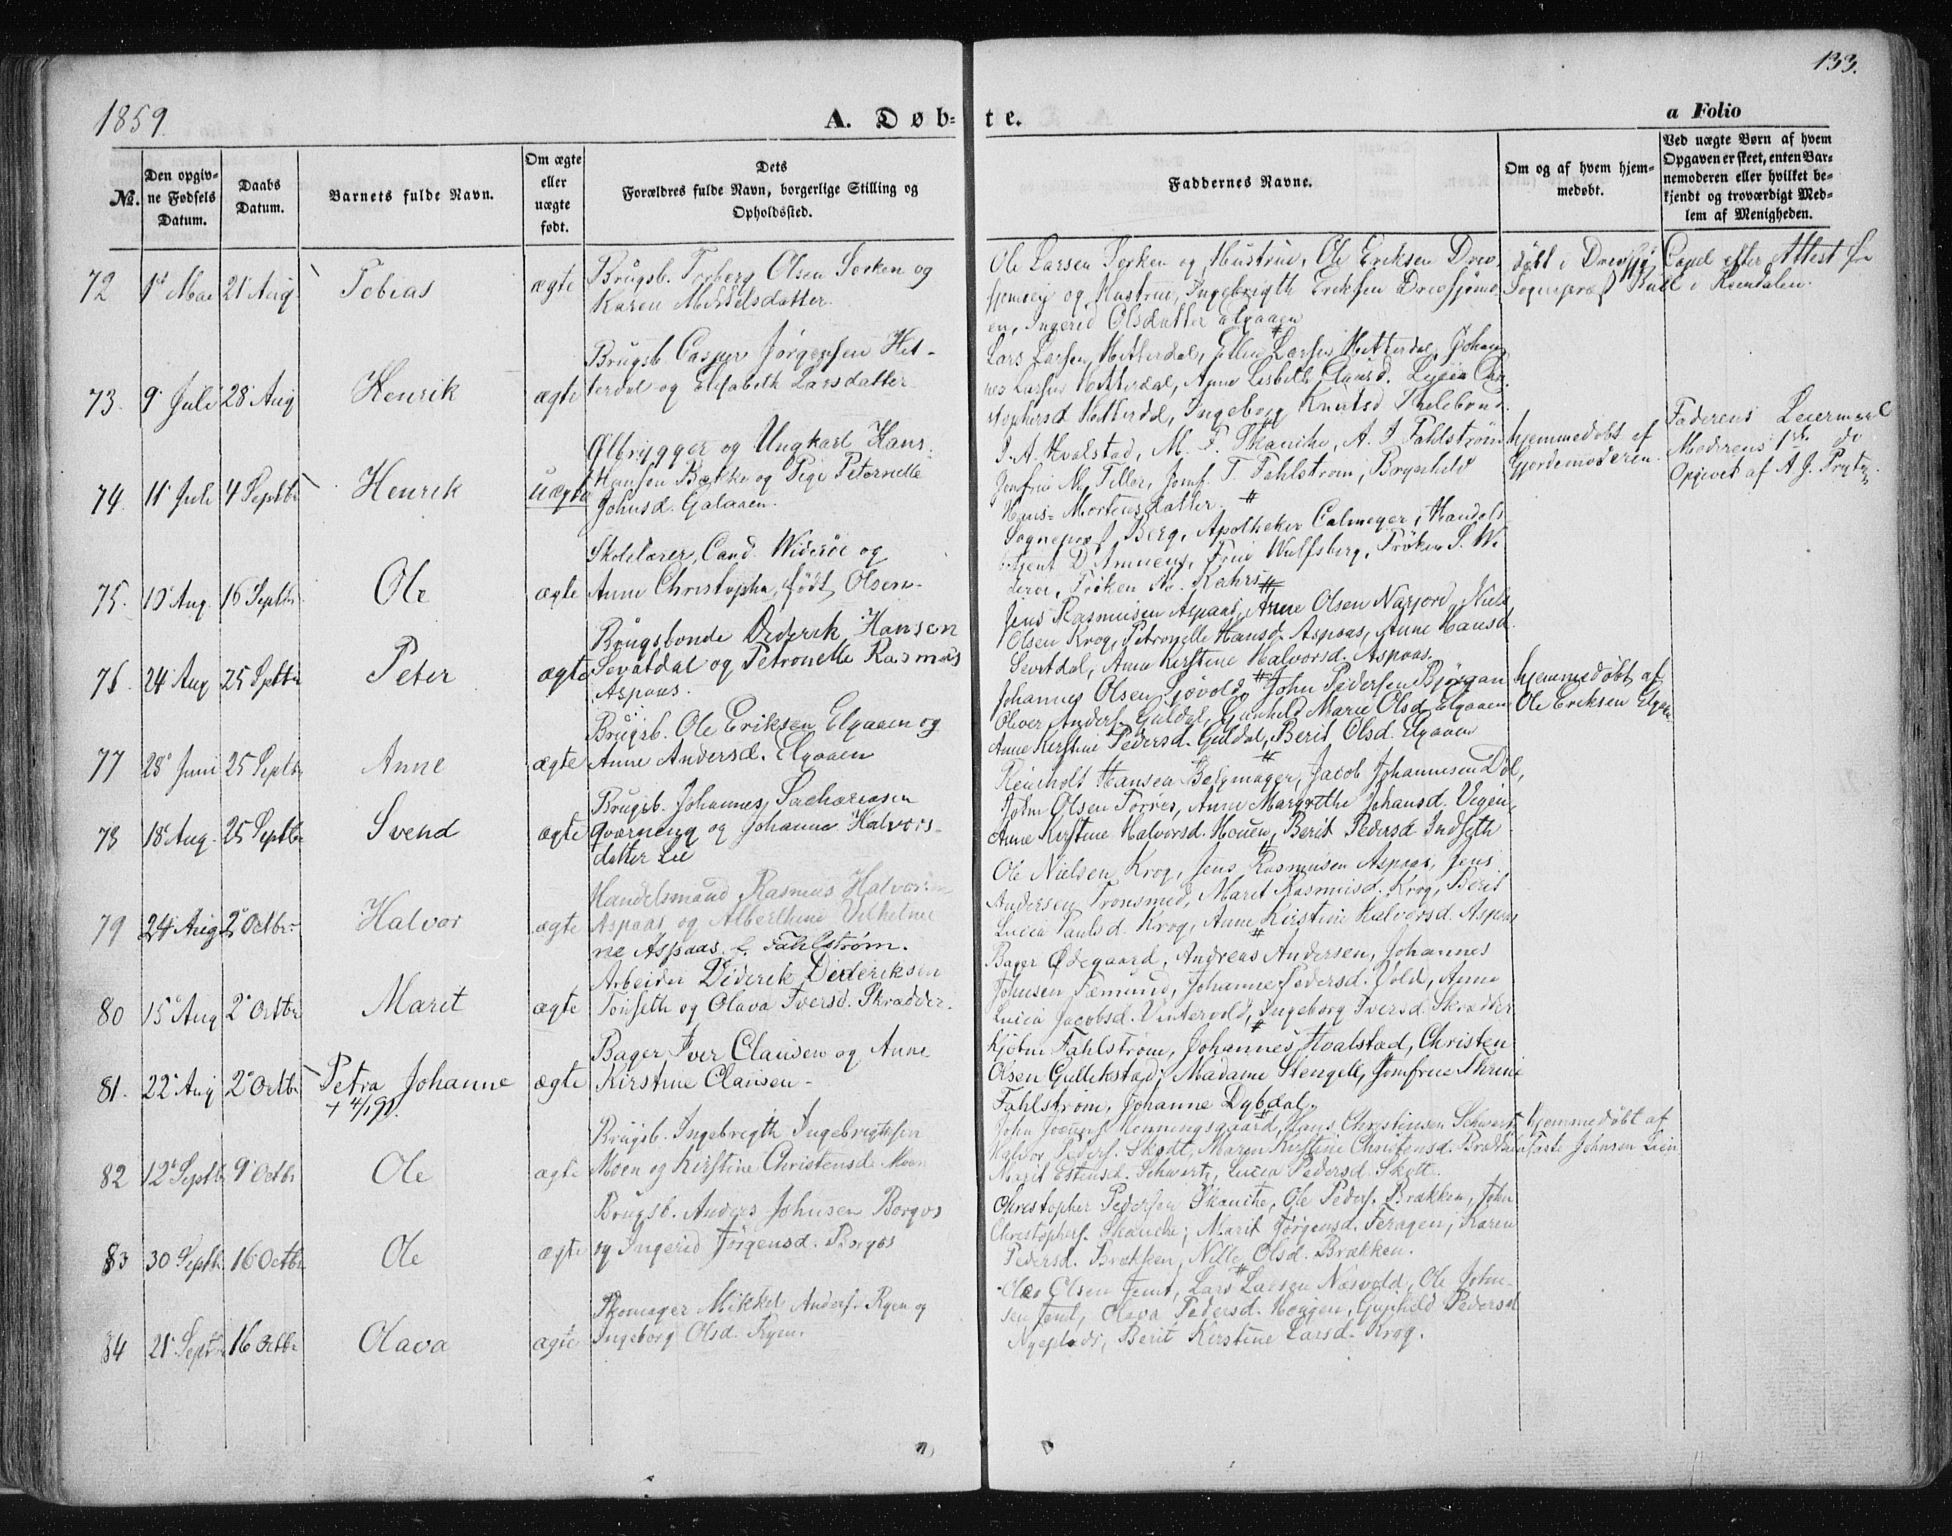 133.
1859
A. Døb-te.
a Folio
No.
Den opgiv-
ne Fødsels
Datum.
Daabs
Datum.
Barnets fulde Navn.
Om ægte
eller
uægte
født.
Dets
Forældres fulde Navn, borgerlige Stilling og
Opholdssted.
Faddernes Navne.
Om og af hvem hjem-
medøbt.
Ved uægte Børn af hvem
Opgaven er skeet, enten Bar-
nemoderen eller hvilket be-
kjendt og troværdigt Med-
lem af Menigheden.
72 1st Mai 21 Aug Tobias ægte
Brugsb. Olsen Sorken og
Karen Mikkelsdatter
Ole Larsen Sorken og Hustrue, Ole Eriksen Drev
sjømoej og Hustrue, Ingebrigth Eriksen Drevsjømo
en, Ingerid Olsdatter Elgaaen
døbt i Drevsjø Capel efter Attest fra
Sognepræst Bull i Rendalen.
73. 9 Juli 28 Aug Henrik ægte
Brugsb. Casper Jørgensen Het-
terdal og Elisabeth Larsdatter
Lars Larsen Hetterdal, Ellen Larsen Hetterdal, Johan
nes Larsen Hetterdal, Anne Lisbeth Clausd. Lucia Chri
stophersd Hetterdal, Ingeborg Knutsd
74. 11 Juli 4 Septbr Henrik uægte
Ølbrygger og Ungkarl Hans
Hansen Bække og Pige Petornelle
Johnsd. Galaaen.
J. A. Hvalstad, M. P. Skanche, A. J. Fahlström
Jomfrue M. Teller, Jomf. T. Fahlstrøm, Brynhild
Hans- Mortensdatter.
hjemmedøbt af
Gjordemoderen.
Faderens Leiermaal
Moderens 1ste do
Opgivet af A. J. Prytz.
75. 10 Aug. 16 Septbr. Ole ægte
Skolelærer, Cand. Widerøe og
Anne Christopha, født Olsen.
Sognepræst Berg, Apotheker Calmeyer, Handels
betjent D. Amneus, Frue Wulfsberg, Frøken S. Wi
derøe, Frøken M. Kahrs
76. 24 Aug 25 Septbr Peter ægte
Brugsbonde Dederik Hansen
Sevatdal og Petronelle Rasmus
Aspaas.
Jens Rasmusen Aspaas, Arne Olsen Narjord, Niels
Olsen Krog, Petronelle Hansd. Aspaas, Anne Hansd.
Sevatdal, Anne Kirstine Halvorsd. Aspaas.
77 28 Juni 25 Septbr Anne ægte
Brugsb. Ole Eriksen Elgaaen og
Anne Andersd. Elgaaen
Johannes Olsen Sjøvold, John Pedersen Bjørgan
Oliver Anders. Guldal, Gunhild Marie Olsd Elgaaen
Anne Kirstine Pedersd. Guldal, Berit Olsd. Elgaaen
hjemmedøbt af
Ole Eriksen Elgaaen
78 18 Aug. 25 Septbr Svend ægte
Brugsb. Johannes Sachariasen
Qværneng og Johanna Halvors-
datter Lie
Reinholt Hansen Belgmager, Jacob Johannesen Døl,
John Olsen Torres, Anne Margrethe Johansd. Vigen,
Anne Kirstine Halvorsd. Houen, Berit Pedersd Indseth
79 24 Aug 2 Octbr. Halvor ægte
Handelsmand Rasmus Halvorsen
Aspaas og Alberthine Vilhelmi
ne Aspaas f. Fahlstrøm.
Ole Nielsen Krog, Jens Rasmusen Aspaas, Jens
Andersen Tronsmed, Marit Rasmusd. Krog, Berit
Lucia Paulsd. Krog, Anne Kirstine Halvorsd. Aspaas
80 15 Aug 2 Octbr Marit ægte
Arbeider Diderik Dideriksen
Tonseth og Olava Iversd. Skrædder.
Bager Ødegaard, Andreas Andersen, Johannes
Johnsen Fæmund, Johanne Pedersd. Vold, Anne
Lucia Jacobsd. Vintervold, Ingeborg Iversd. Skrædder
81. 22 Aug 2 Octbr Petra Johanne ægte
+ 4/1 91.
Bager Iver Clausen og Anne
Kirstine Clausen.
Kjøbm Fahlstrøm, Johannes Hvalstad, Christen
Olsen Gullikstad, Madame Stengel, Jomfrue Thrine
Fahlstrøm, Johanne Dybdal.
82 12 Septbr 9 Octbr Ole ægte
Brugsb. Ingebrigth Ingebrigtsen
Moen og Kirstine Christensd. Moen
John Henningsgaard, Hans Christensen Schwart
Halvor Peders. Skott, Maren Kirstine Christensd. Brækken
Marit Estensd. Schwart, Lucia Pedersd. Skott.
hjemmedøbt af
Johnsen Lien
83 30 Septb 16 Octbr Ole ægte
Brugsb. Anders Johnsen Borgos
og Ingerid Jørgensd. Borgos
Christopher Pedersen Skanche, Ole Peders. Brækken, John
Christophers. Skanche, Marit Jørgensd. Feragen, Karen
Pedersd. Brækken, Nille Olsd. Brækken.
84 21 Septbr 16 Octbr Olava ægte
Skomager Mikkel Anders. Ryen og
Ingeborg Olsd. Ryen.
Olsen Jemt, Lars Larsen Næsvold, Ole John-
sen Jemt, Olava Pedersd. Haugen, Gunhild Pedersd
Nyeplads, Berit Kirstine Larsd. Krog.